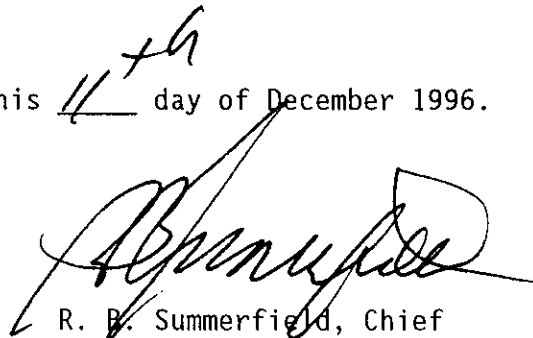 his 11th day of December 1996.
R. B. Summerfield, Chief